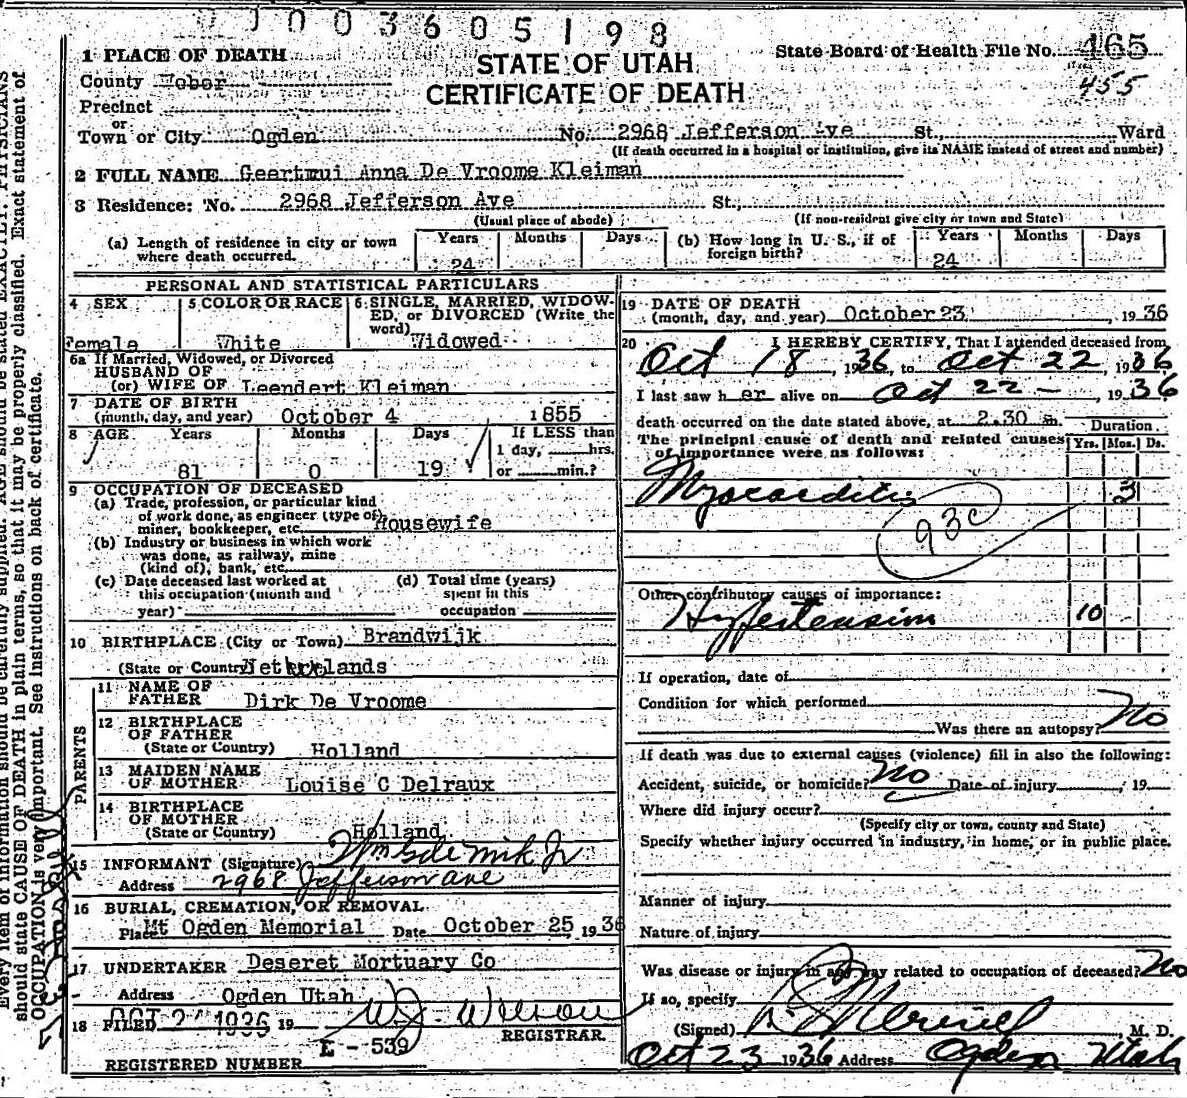 0003605198
1 PLACE OF DEATH
STATE OF UTAH
CERTIFICATE OF DEATH
State Board of Health File No. 465
455
County Weber
Precinct
or
Town or City Ogden No. 2968 Jefferson Ave St., Ward
(If death occurred in a hospital or institution, give its NAME instead of street and number)
2 FULL NAME Geertrui Anna De Vroome Kleiman
3 Residence: No. 2968 Jefferson Ave St.,
(Usual place of abode) (If non-resident give city or town and State)
(a) Length of residence in city or town where death occurred. Years 24 Months Days
(b) How long in U. S., if of foreign birth? Years 24 Months Days
PERSONAL AND STATISTICAL PARTICULARS
4 SEX Female
5 COLOR OR RACE White
6 SINGLE, MARRIED, WIDOW-
ED, or DIVORCED (Write the
word) Widowed
6a If Married, Widowed, or Divorced
HUSBAND OF
(or) WIFE OF Leendert Kleiman
7 DATE OF BIRTH
(month, day, and year) October 4 1855
8 AGE Years 81 Months 0 Days 19
If LESS than
1 day, hrs.
or min.?
9 OCCUPATION OF DECEASED
(a) Trade, profession, or particular kind
of work done, as engineer (type of)
miner, bookkeeper, etc. Housewife
(b) Industry or business in which work
was done, as railway, mine
(kind of), bank, etc.
(c) Date deceased last worked at
this occupation (month and
year)
(d) Total time (years)
spent in this
occupation
10 BIRTHPLACE (City or Town) Brandwijk
(State or Country) Netherlands
PARENTS
11 NAME OF
FATHER Dirk De Vroome
12 BIRTHPLACE
OF FATHER
(State or Country) Holland
13 MAIDEN NAME
OF MOTHER Louise C Delraux
14 BIRTHPLACE
OF MOTHER
(State or Country) Holland
15 INFORMANT (Signature)
Address 2968 Jefferson ave
16 BURIAL, CREMATION, OR REMOVAL
Place Mt Ogden Memorial Date October 25, 1936
17 UNDERTAKER Deseret Mortuary Co
Address Ogden Utah
18 FILED OCT 2 1936 19 W. J. Wilson
REGISTRAR
E-539
REGISTERED NUMBER
19 DATE OF DEATH
(month, day, and year) October 23, 1936
20 I HEREBY CERTIFY, That I attended deceased from
Oct 18, 1936, to Oct 22, 1936
I last saw her alive on Oct 22 -, 1936
death occurred on the date stated above, at 2.30 m.
Duration
The principal cause of death and related causes
of importance were as follows:
Yrs. Mos. Ds.
Myocarditis 3
93c
Other contributory causes of importance:
Hypertension 10
If operation, date of
Condition for which performed
Was there an autopsy? No
If death was due to external causes (violence) fill in also the following:
Accident, suicide, or homicide? No Date of injury , 19
Where did injury occur?
(Specify city or town, county and State)
Specify whether injury occurred in industry, in home, or in public place.
Manner of injury
Nature of injury
Was disease or injury in any way related to occupation of deceased? No
If so, specify
(Signed) , M. D.
Oct 23 1936 Address Ogden Utah
should state CAUSE OF DEATH in plain terms, so that it may be properly classified. Exact statement of
OCCUPATION is very important. See instructions on back of certificate.